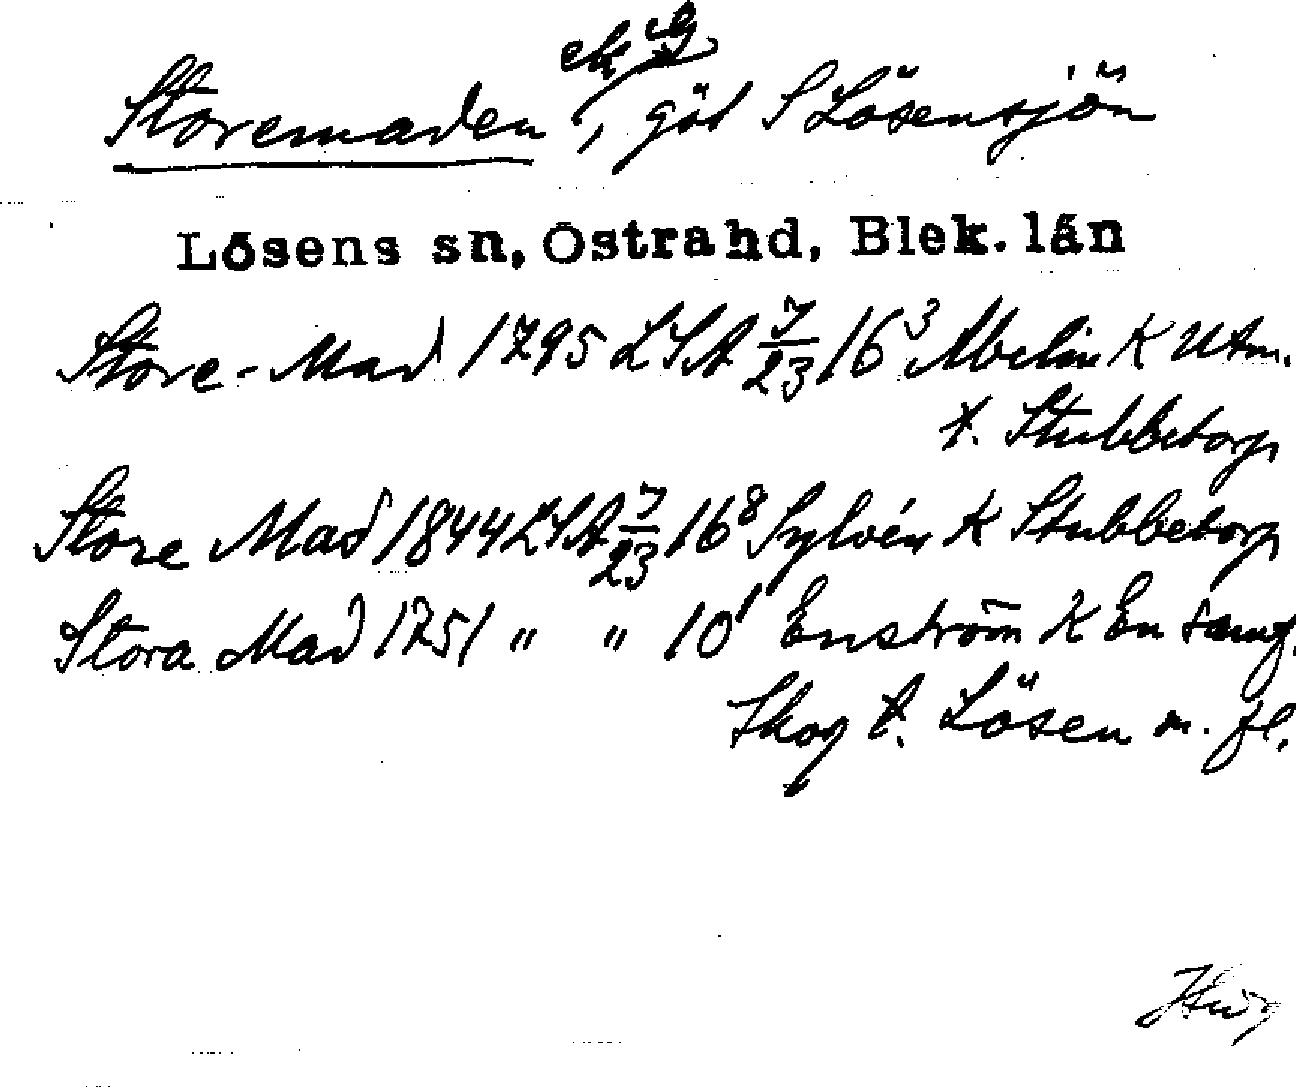 ek G
Storemaden, göl S Lösensjön
Lösens sn, Östra hd, Blek. län
Store-Mad 1795 LSA 7/23 16³ Abelin K Utm.
t. Stubbetorp
Store Mad 1844 LSA 7/23 16⁸ Sylvén K Stubbetorp
Stora Mad 1751 " " 10¹ Enström K En samf.
Skog t. Lösen m. fl.